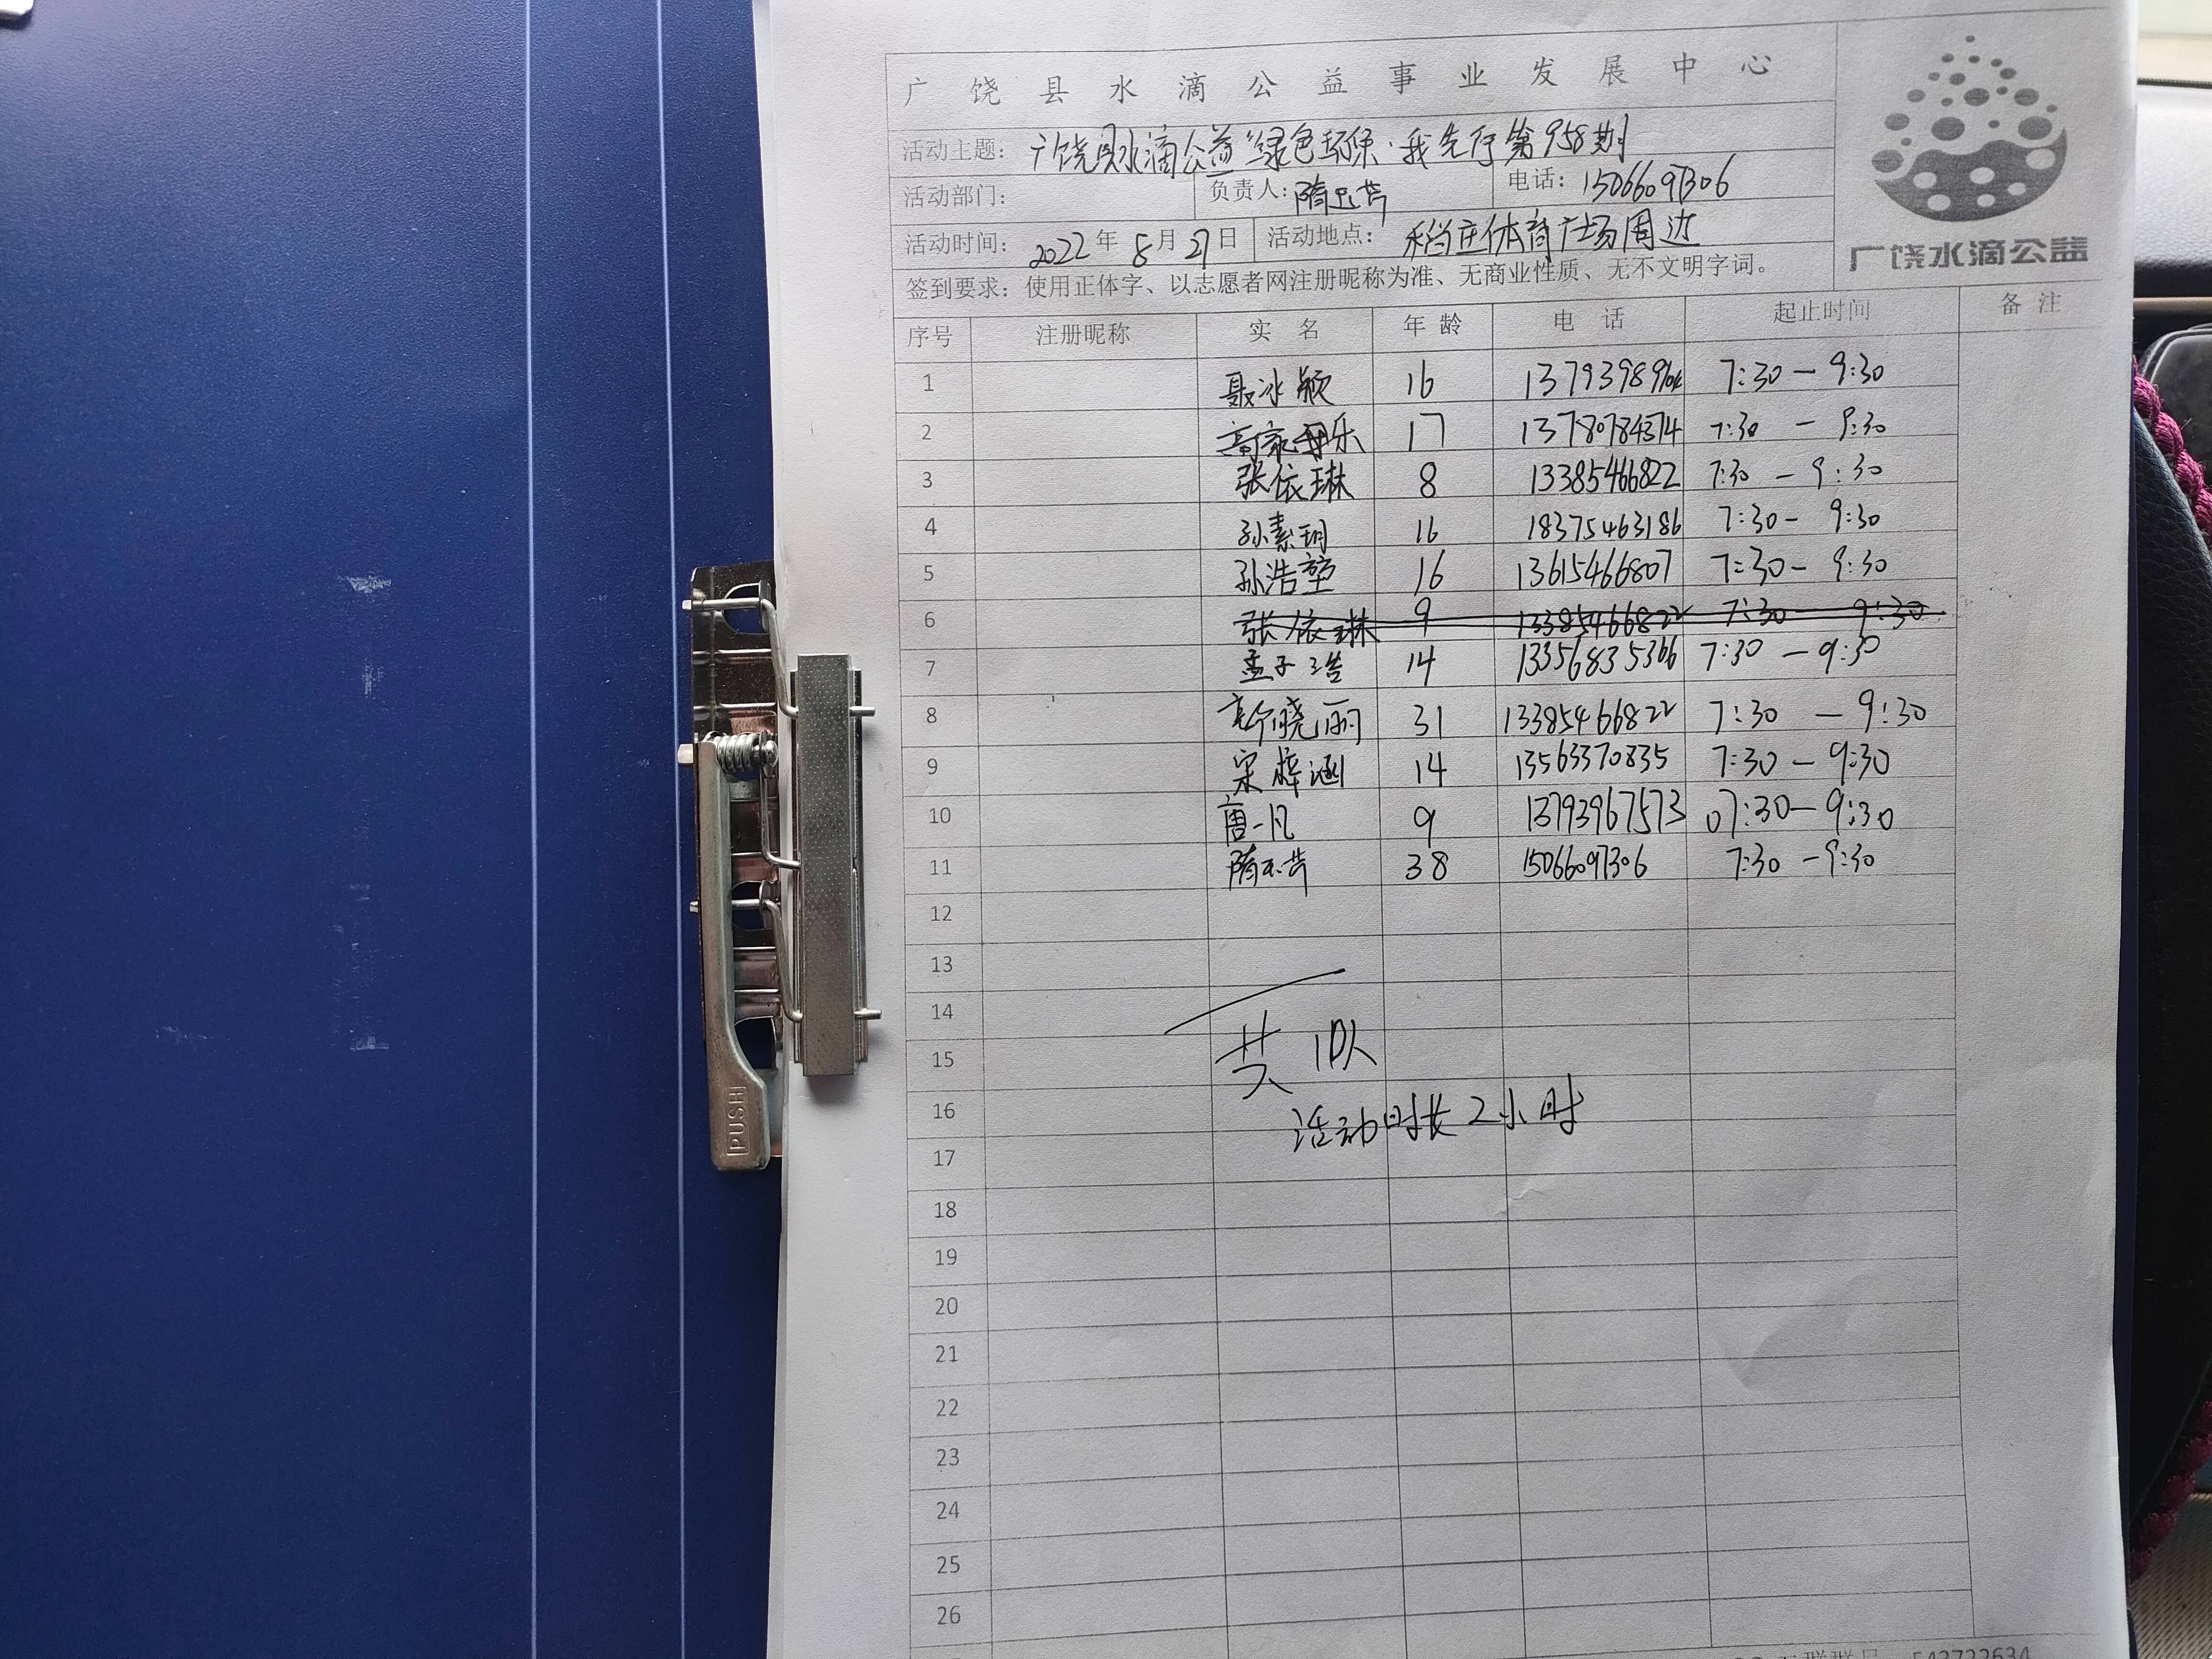 广饶县水滴公益事业发展中心
活动主题: 广饶县水滴公益“绿色环保·我先行第958期
活动部门: 负责人: 隋玉芹 电话: 15066097306
活动时间: 2022年8月27日 活动地点: 稻庄体育广场周边
签到要求: 使用正体字、以志愿者网注册昵称为准、无商业性质、无不文明字词。
广饶水滴公益
序号 注册昵称 实名 年龄 电话 起止时间 备注
1 聂冰颖 16 13793989 7:30-9:30
2 乐 17 13780784374 7:30-9:30
3 张依琳 8 13385466822 7:30-9:30
4 孙素玥 16 18375463186 7:30-9:30
5 孙浩堃 16 13615466807 7:30-9:30
6 张依琳 9 13385466822 7:30-9:30
7 孟子浩 14 13356835366 7:30-9:30
8 靳晓丽 31 13385466822 7:30-9:30
9 宋梓涵 14 13563370835 7:30-9:30
10 唐一凡 9 13793967573 07:30-9:30
11 隋玉芹 38 15066097306 7:30-9:30
12
13
14
共10人
15
活动时长2小时
16
17
18
19
20
21
22
23
24
25
26
PUSH